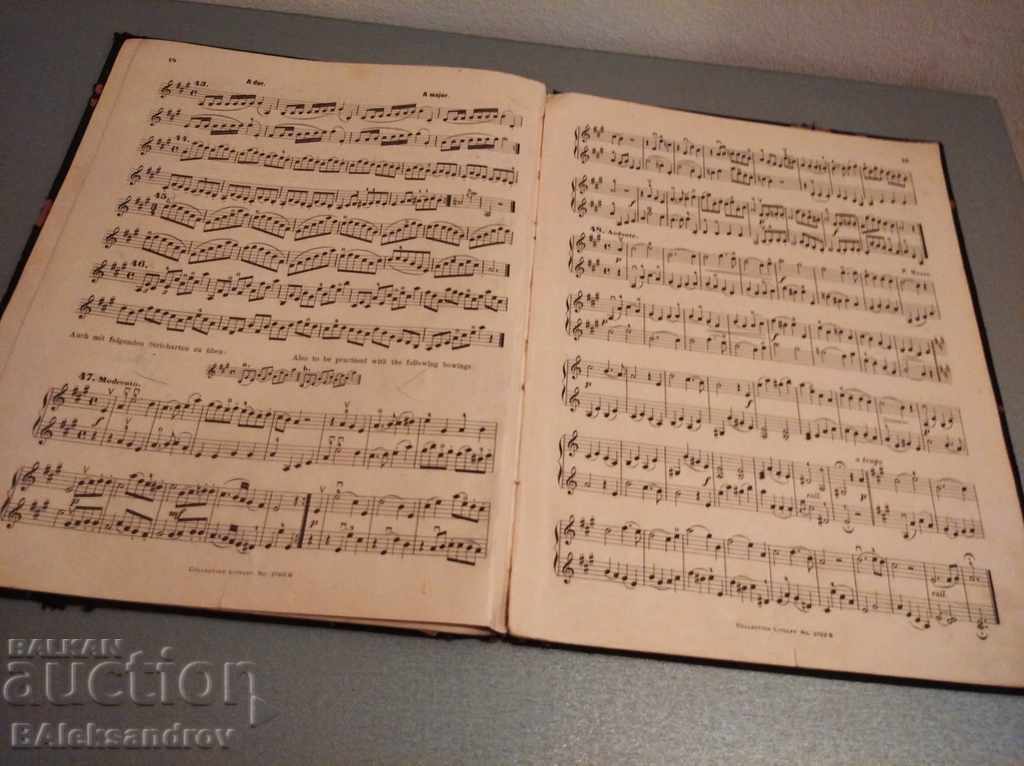 18
43. A dur. A major.
44.
45.
46.
Auch mit folgenden Stricharten zu üben.
Also to be practised with the following bowings.
47. Moderato.
COLLECTION LITOLFF No. 2702 B
19
48. Andante.
p
a tempo
rall.
rall.
COLLECTION LITOLFF No. 2702 B
BALKAN
auction
BAleksandrov